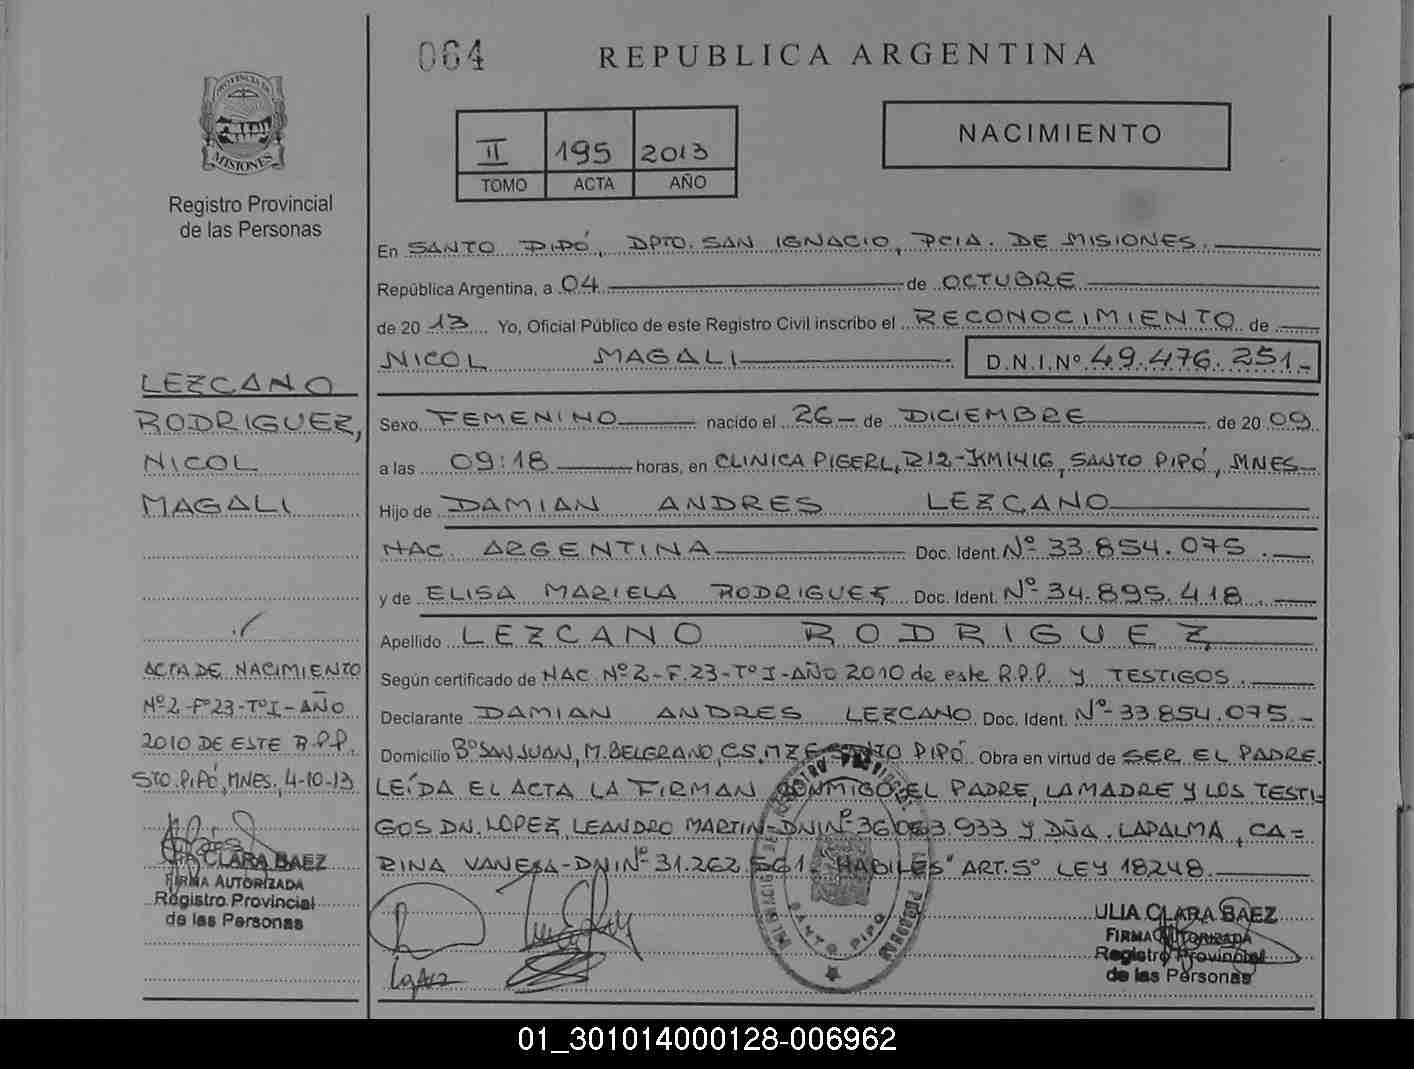 064
REPUBLICA ARGENTINA
PROVINCIA DE
MISIONES
Registro Provincial
de las Personas
II 195 2013
TOMO ACTA AÑO
NACIMIENTO
En SANTO PIPÓ, DPTO. SAN IGNACIO, PCIA. DE MISIONES.
República Argentina, a 04 de OCTUBRE
de 2013 Yo, Oficial Público de este Registro Civil inscribo el RECONOCIMIENTO de
NICOL MAGALI D.N.I.Nº 49.476.251.-
Sexo FEMENINO nacido el 26 de DICIEMBRE de 2009
a las 09:18 horas, en CLINICA PIGERL, R12-KM1416, SANTO PIPÓ, MNES
Hijo de DAMIAN ANDRES LEZCANO
NAC. ARGENTINA Doc. Ident. Nº 33.854.075.
y de ELISA MARIELA RODRIGUEZ Doc. Ident. Nº 34.895.418.
Apellido LEZCANO RODRIGUEZ
Según certificado de NAC. Nº2-F.23-TºI-AÑO 2010 de este R.P.P. Y TESTIGOS.
Declarante DAMIAN ANDRES LEZCANO. Doc. Ident. Nº 33.854.075.-
Domicilio Bº SAN JUAN, M. BELGRANO, CS. MZE SANTO PIPÓ Obra en virtud de SER EL PADRE.
LEÍDA EL ACTA LA FIRMAN CONMIGO EL PADRE, LA MADRE Y LOS TESTI-
GOS DN. LOPEZ, LEANDRO MARTIN-DNINº 36.063.933 Y DÑA. LAPALMA, CA=
RINA VANESA-DNINº 31.262.561 "HABILES" ART.5º LEY 18248.
LEZCANO
RODRIGUEZ,
NICOL
MAGALI
ACTA DE NACIMIENTO
Nº2-Fº23-TºI-AÑO
2010 DE ESTE R.P.P.
STO. PIPÓ, MNES., 4-10-13
CLARA BAEZ
FIRMA AUTORIZADA
Registro Provincial
de las Personas
SANTO PIPÓ
ULIA CLARA BAEZ
FIRMA AUTORIZADA
Registro Provincial
de las Personas
01_301014000128-006962